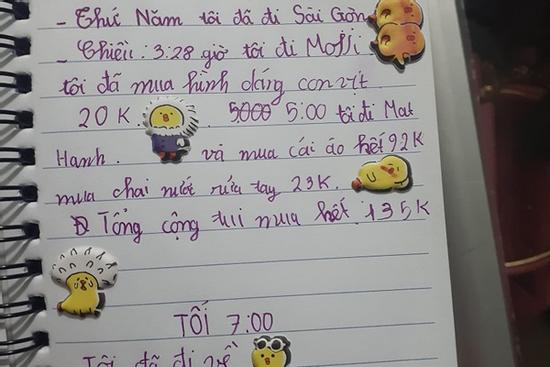 - Thứ Năm tôi đã đi Sài Gòn
- Chiều: 3:28 giờ tôi đi Molli
tôi đã mua hình dáng con vịt
20 K. 5000 5:00 tôi đi Mat
Hanh. và mua cái áo hết 92K
mua chai nước rửa tay 23K.
Tổng cộng tui mua hết 135K
TỐI 7:00
Tôi đã đi về